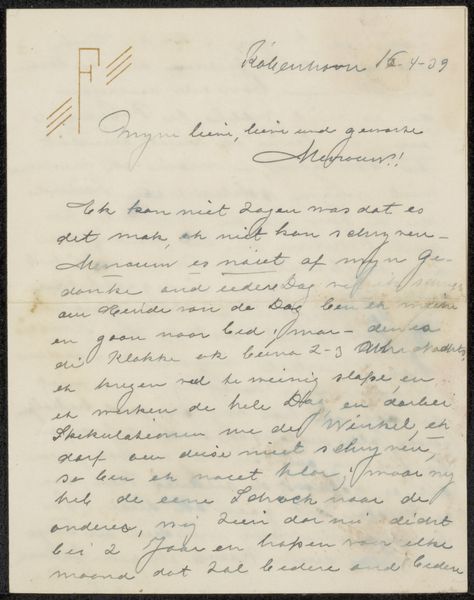 F
København 16-4-39
Mijn lieve, lieve und gewarte
Mevrouw!!
Ek kan niet sagen was dat es
det mak, ek nitt kan schryven-
Mevrouw es noiet af myn Ge-
danke und iedere Dag
am Hende van de Dag ben ek
en gaan naar bed, mar- den es
di klokke ok beina 2-3 Uhr Nachts,
ek kregen vel te weinig slape, en
ek werken de hele Dag, en darbei
Spekulationen we de Winkel, ek
darf oen diese niett schryven,
so ben ek noiet klar, maar ny
heb de eene Schock naar de
andere, wij zein dar nu dicht
bei 2 Jaar en hapen van elke
maand dat zal bedere und bedere